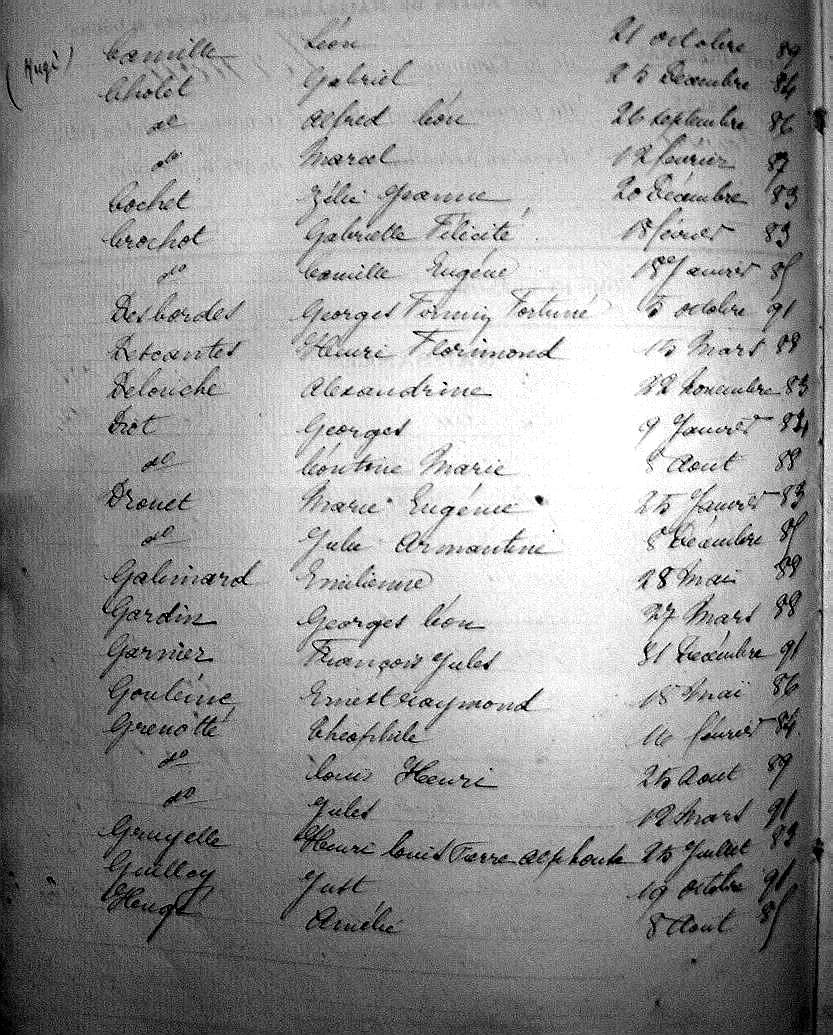 (Hugé) Camille Léon 21 octobre 89
Cholet Gabriel 25 Decembre 84
do Alfred Léon 26 septembre 86
do Marcel 12 février 87
Cochet Zélie Jeanne 20 Décembre 83
Crochot Gabrielle Félicité 18 février 83
do Camille Eugène 18 Janvier 85
Desbordes Georges Firmin Fortuné 5 octobre 91
Descantes Henri Florimond 15 Mars 88
Delouche Alexandrine 22 Novembre 83
Diot Georges 9 Janvier 84
do Marie 8 Aout 88
Drouet Marie Eugénie 25 Janvier 83
do Julie Armantine 8 Décembre 85
Galimard Emilienne 28 Mai 88
Gardin Georges Léon 27 Mars 88
Garnier François Jules 31 Décembre 91
Ernest Raymond 18 Maï 86
Grenotté Théophile 16 février 84
do Louis Henri 25 Aout 89
do Jules 12 Mars 91
Gruyelle Henri Louis Pierre Alphonse 25 Juillet 83
Guilloy Just 19 octobre 91
Hugé Amélie 8 Aout 85